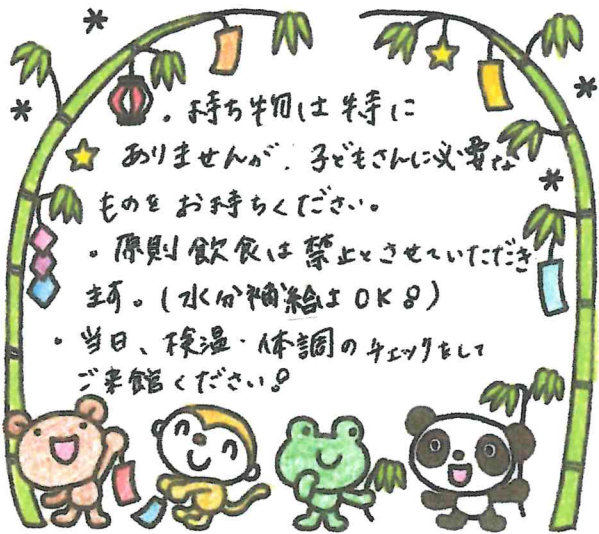 ・持ち物は特に
ありませんが、子どもさんに必要な
ものをお持ちください。
・原則飲食は禁止とさせていただき
ます。(水分補給はOK!)
・当日、検温・体調のチェックをして
ご来館ください!